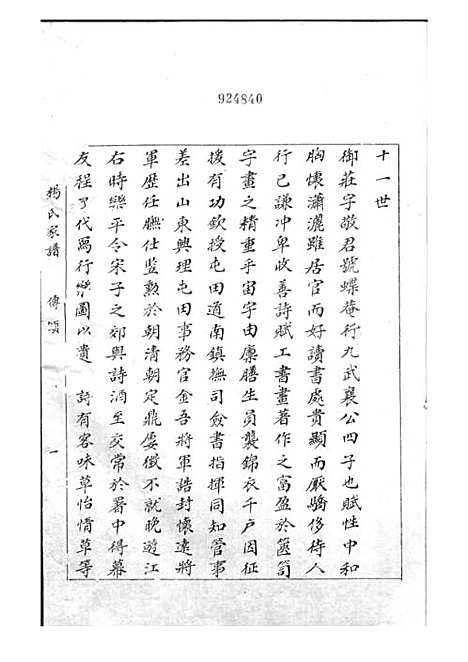 924840
十一世
御莊字敬君號蝶菴行九武襄公四子也賦性中和
胸懷瀟灑雖居官而好讀書處貴顯而厭驕侈待人
行己謙冲卑收善詩賦工書畫著作之富盈於篋笥
字畫之精重乎宙宇由廩膳生員襲錦衣千戶因征
援有功欽授屯田道南鎮撫司僉書指揮同知管事
差出山東興理屯田事務官金吾將軍誥封懷遠將
軍歷任膴仕監勲於朝清朝定鼎屢徵不就晚遊江
右時樂平令宋子之郊與詩酒至交常於署中得幕
友程代爲行樂圖以遺 詩有客味草怡情草等
楊氏家譜 傳頌 一